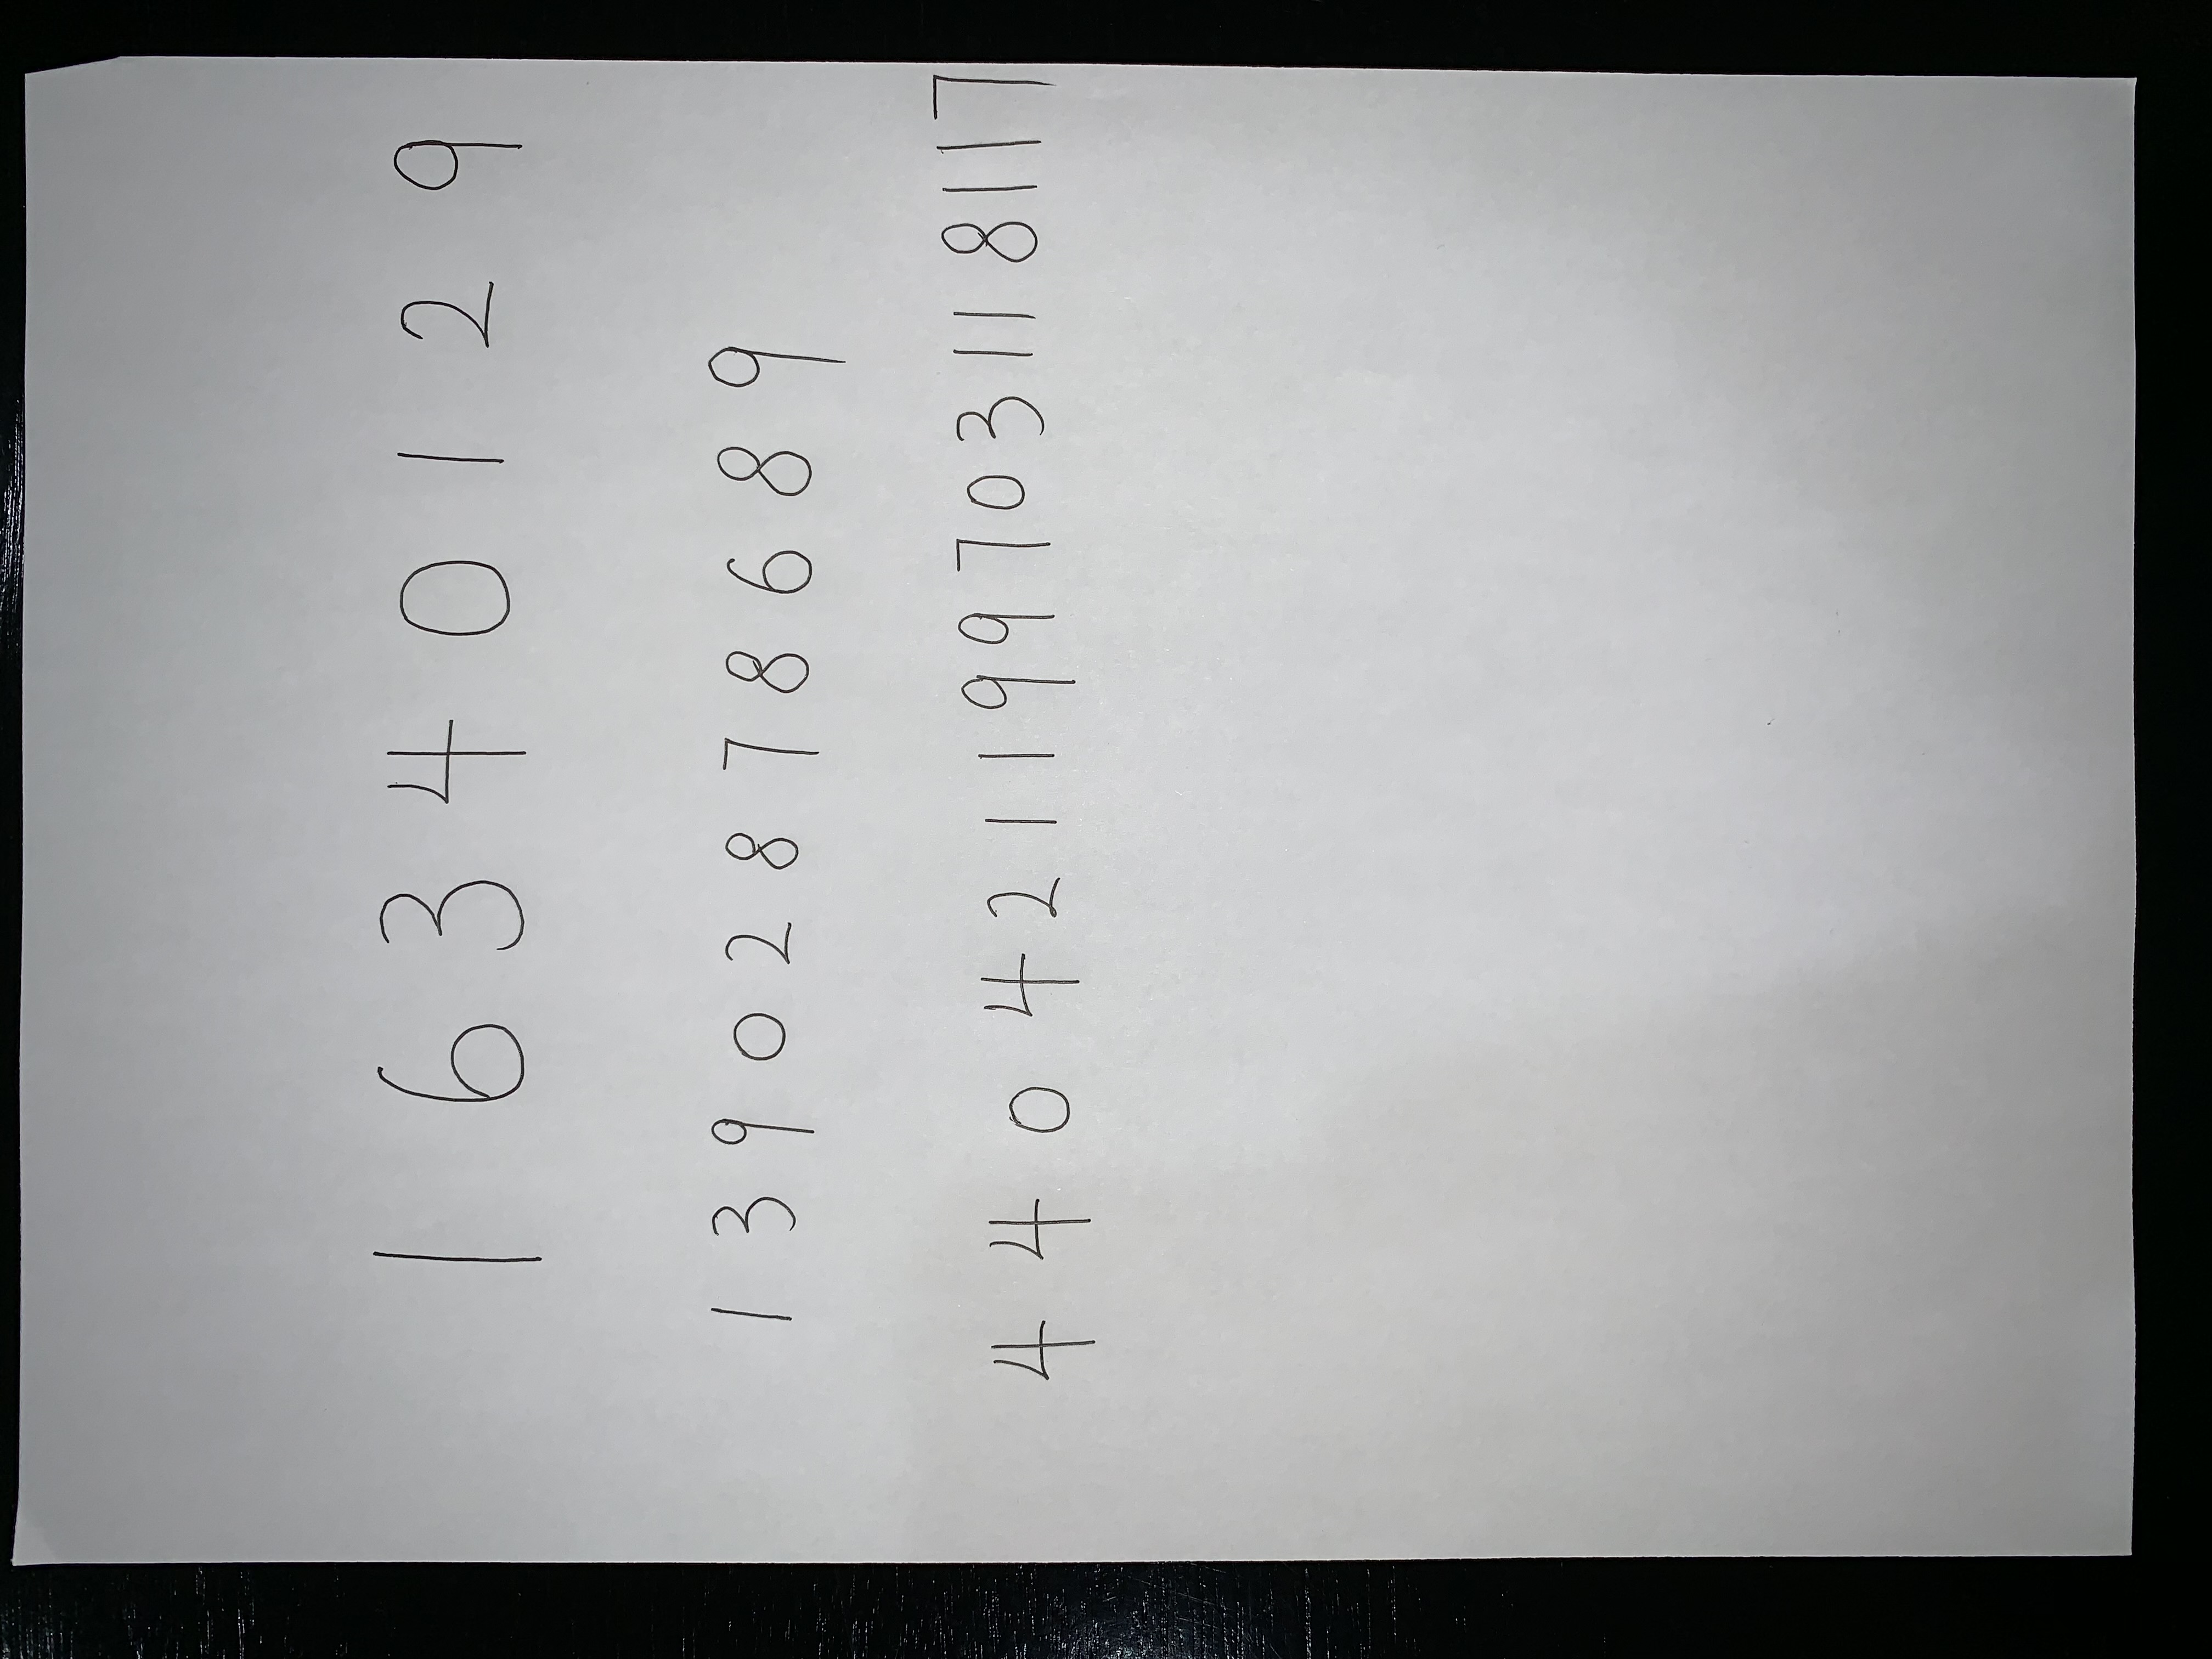 1 6 3 4 0 1 2 9
1 3 9 0 2 8 7 8 6 8 9
4 4 0 4 2 1 1 9 9 7 0 3 1 1 8 1 1 7